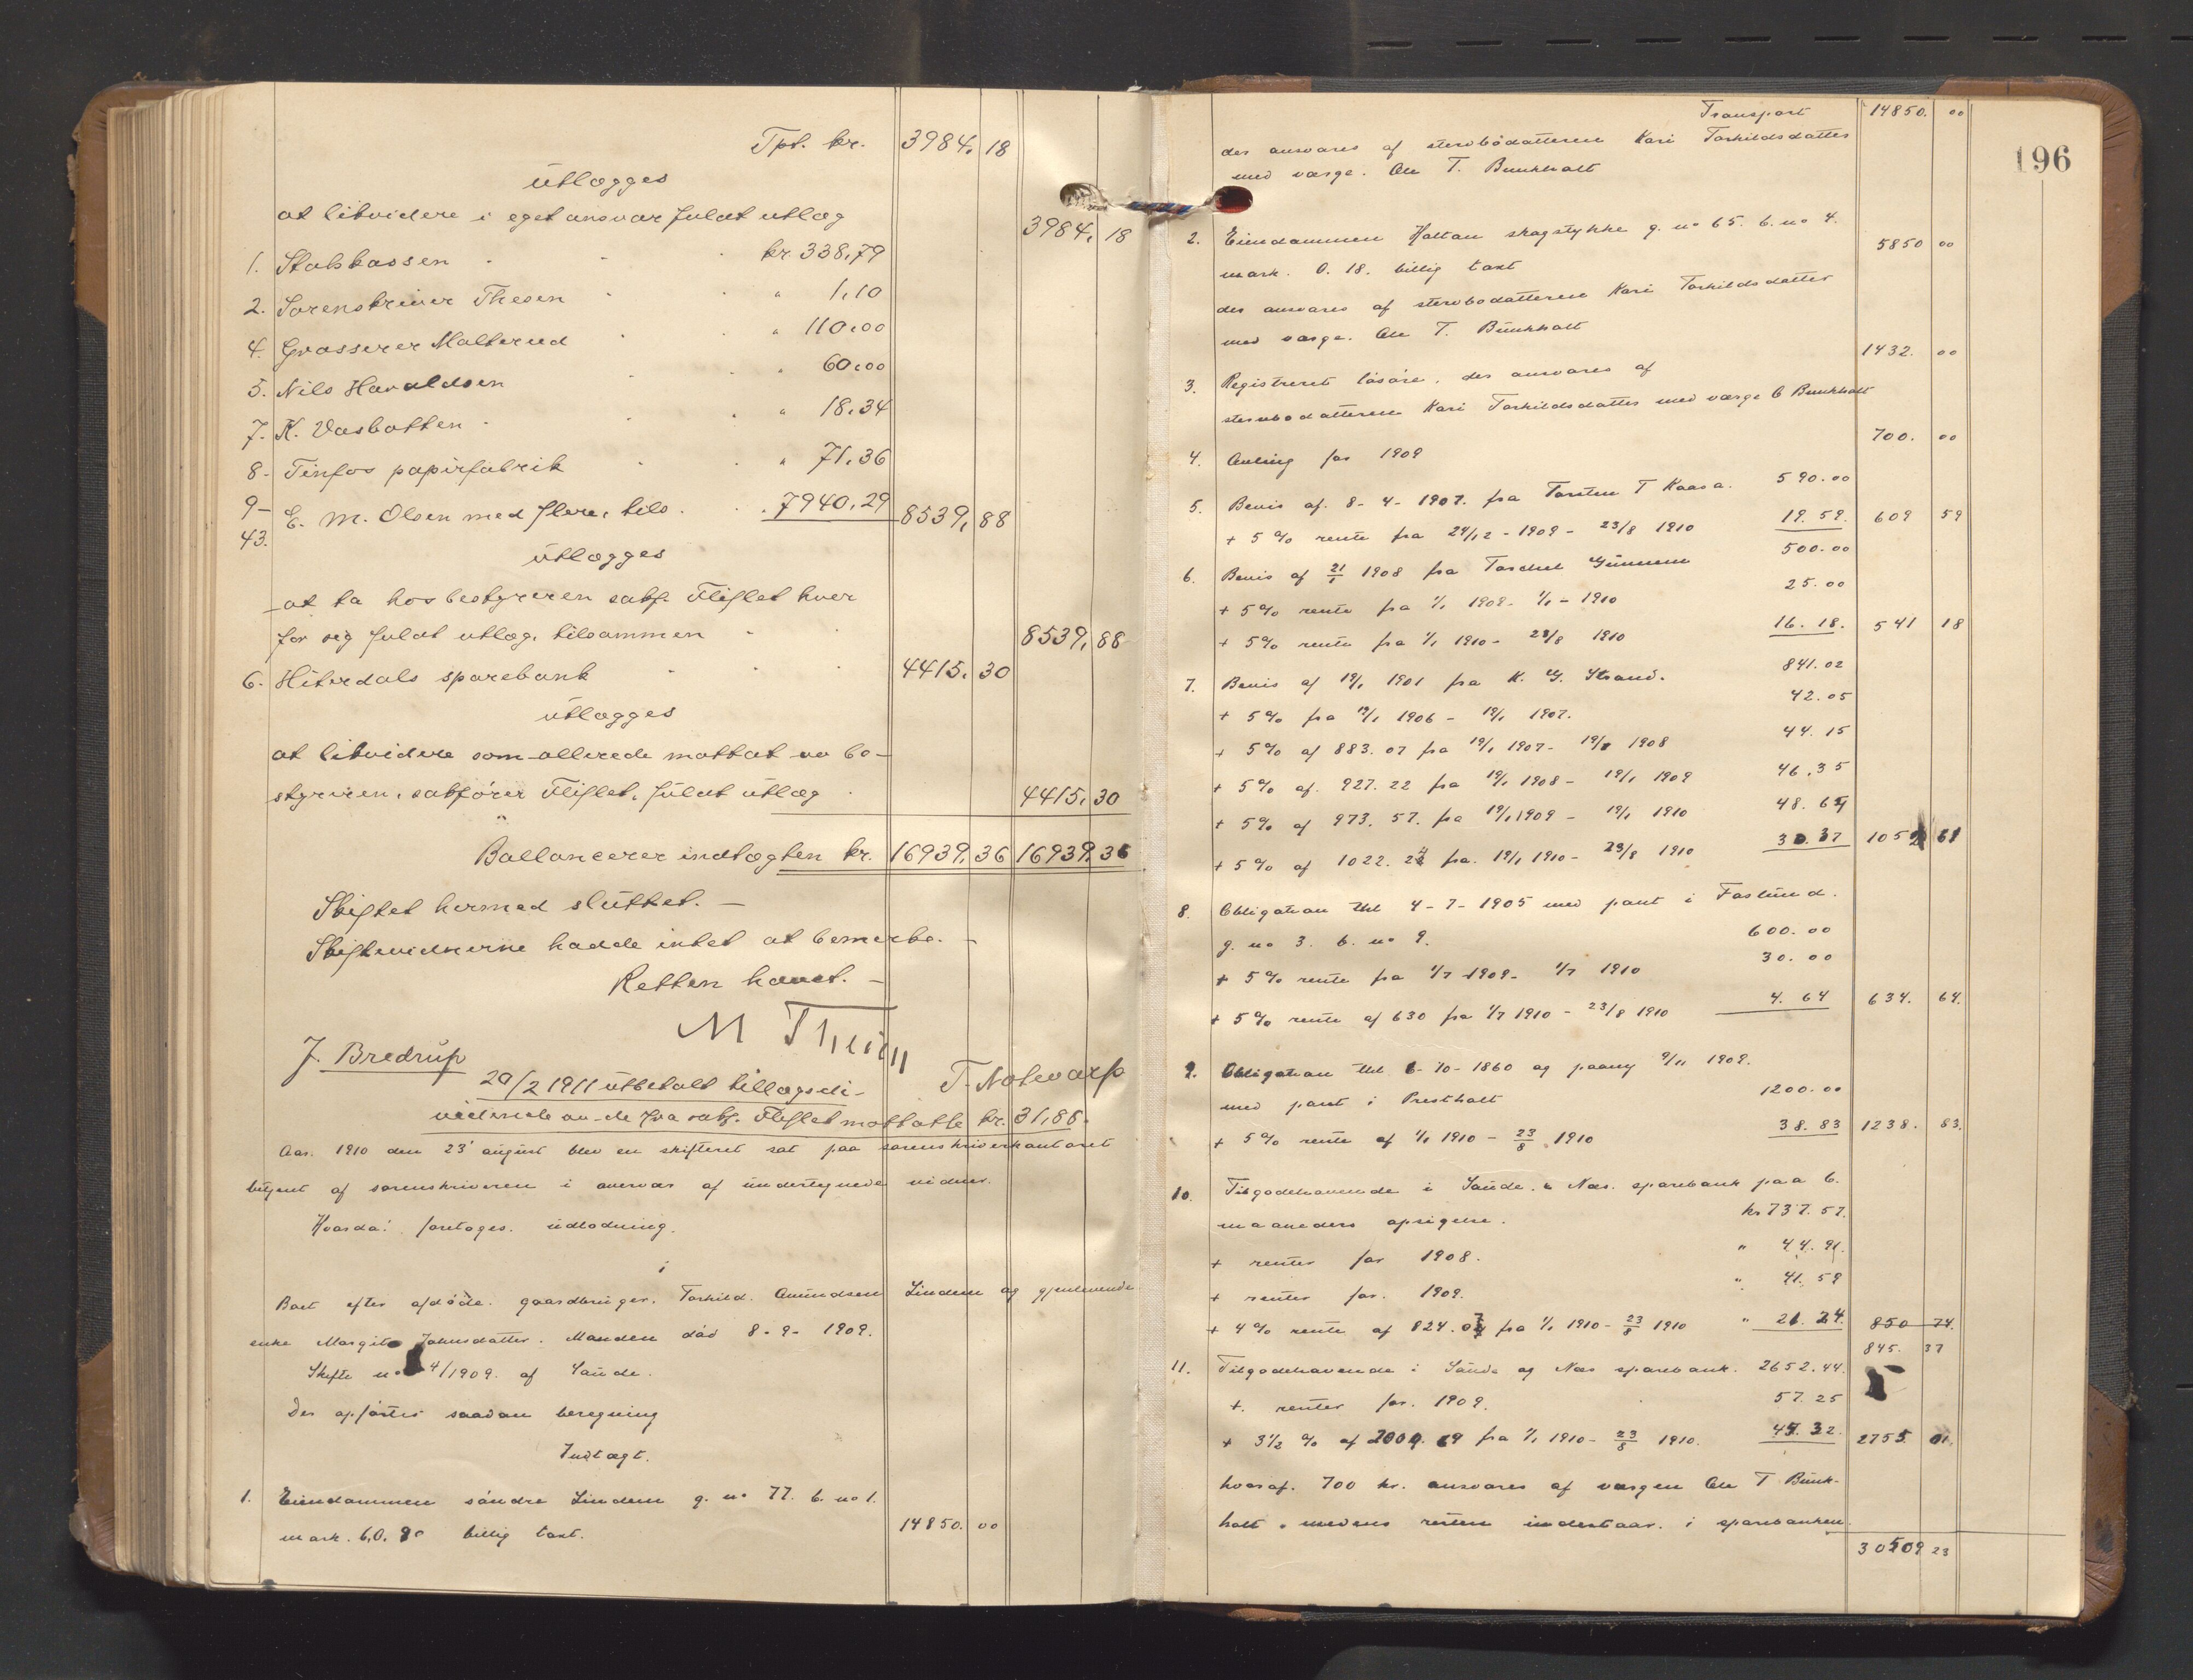 Tpt. kr. 3984,18
Utlægges
at likvidere i eget ansvar fuldt utlæg 3984,18
1. Statskassen kr 338,79
2. Sorenskriver Thesen " 1,10
4. Grosserer Malterud " 110,00
5. Nils Haraldsen " 60,00
7. K. Vasbotten " 18,34
8. Tinfos papirfabrik " 71,36
9- E. M. Olsen med flere, tils. 7940,29 8539,88
43.
Utlægges
at ta hos bestyreren sakf. Fliflet hver
for sig fuldt utlæg, tilsammen 8539,88
6. Hiterdals sparebank 4415,30
Utlægges
at likvidere som allerede mottat av be-
styreren, sakfører Fliflet, fuldt utlæg 4415,30
Ballancerer indtægten kr. 16939,36 16939,36
Skiftet hermed sluttet. —
Skiftevidnerne hadde intet at bemerke. —
Retten hævet. —
M Thesen
J. Bredrup
T. Notevarp
20/2 1911 utbetalt tillægsdi-
vidende av de fra sakf. Fliflet mottatte kr. 31,88.
Aar. 1910 den 23' august blev en skifteret sat paa sorenskriverkontoret
betjent af sorenskriveren i overvær af undertegnede vidner.
Hvorda: foretoges. udlodning.
i
Boet efter afdøde. gaardbruger. Torkild. Amundsen Lindem og gjenlevende
enke Margit Johnsdatter. Manden død 8-9-1909.
Skifte no 4/1909. af Saude.
Der opførtes saadan beregning
Indtægt.
1. Eiendommen søndre Lindem g. no 77. b. no 1.
mark. 6,0.80 billig takst. 14850.00
196
Transport 14850. 00
der ansvares af stervbodatteren Kari Torkildsdatter
med værge. Ole T. Bunkholt
2. Eiendommen Holtan skogstykke g. no 65. b. no 4.
mark. 0.18. billig takst 5850 00
der ansvares af stervbodatteren Kari Torkildsdatter
med værge. Ole T. Bunkholt
3. Registreret løsøre. der ansvares af 1432. 00
stervbodatteren Kari Torkildsdatter med værge O Bunkholt
4. Avling for 1909 700. 00
5. Bevis af. 8-4-1907. fra Torsten T Kaasa. 590.00
+ 5 % rente fra 24/12-1909 - 23/8 1910 19.59. 609 59
6. Bevis af 21/1 1908 fra Torkel 500.00
+ 5% rente fra 1/1 1909- 1/1-1910 25.00
+ 5% rente fra 1/1 1910- 23/8 1910 16.18. 541 18
7. Bevis af 19/1 1901 fra K. G. Strand. 841.02
+ 5% fra 19/1 1906 - 19/1 1907. 42.05
+ 5% af 883.07 fra 19/1 1907- 19/1 1908 44.15
+ 5% af. 927.22 fra 19/1 1908- 19/1 1909 46.35
+ 5% af 973.57. fra 19/1 1909 - 19/1 1910 48.67
+ 5% af 1022.24 fra. 19/1 1910- 23/8 1910 30.37 1052 61
8. Obligation thl 4-7-1905 med pant i Foslund.
g. no 3. b. no 9. 600.00
+ 5% rente fra 1/7 1909- 1/7 1910 30.00
+ 5% rente af 630 fra 1/7 1910 - 23/8 1910 4.64 634. 64.
9. Obligation thl 6-10-1860 og paany 9/11 1909.
med pant i Prestholt 1200.00
+ 5% rente af 1/1 1910 - 23/8 1910 38.83 1238. 83.
10. Tilgodehavende i Saude. & Nes. sparebank paa 6.
maaneders opsigelse. kr 737.57.
+ renter for 1908. " 44.91.
+ renter for. 1909. " 41.59
+ 4% rente af 824.07 fra 1/1 1910- 23/8 1910 " 21.24. 850 74.
845. 37
11. Tilgodehavende i Saude og Nes sparebank. 2652.44.
+. renter for. 1909. 57.25
+ 3½ % af 2009.69 fra 1/1 1910- 23/8 1910. 45.32. 2755. 01.
hvoraf. 700 kr. ansvares af værgen Ole T. Bunk-
holt, medens resten indestaar. i sparebanken.
30509 23